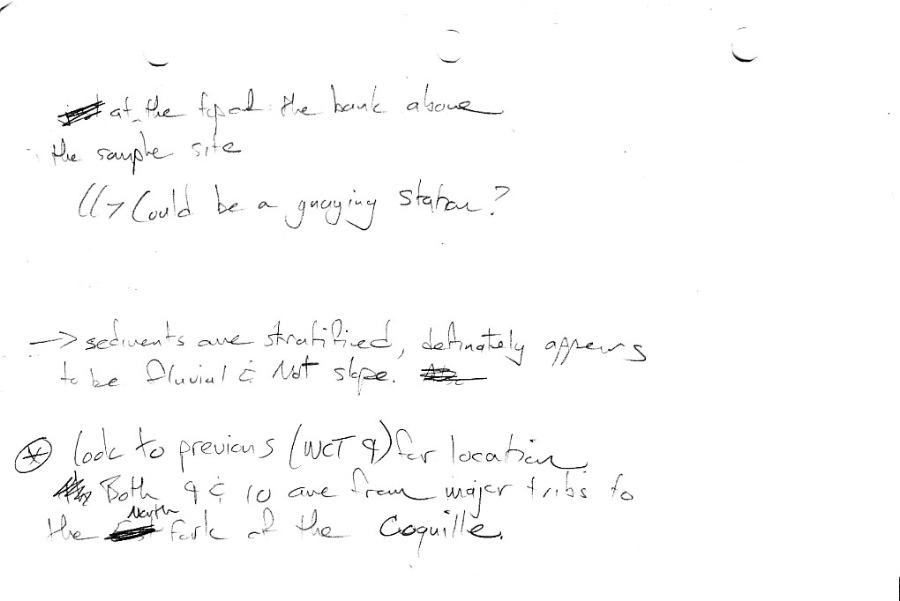 at the top of the bank above
the sample site
↳> Could be a gauging station?
-> sediments are stratified, definately appears
to be fluvial & Not slope.
⊛ look to previous (WCT 9) for location.
Both 9 & 10 are from major tribs to
the North fork of the Coquille.